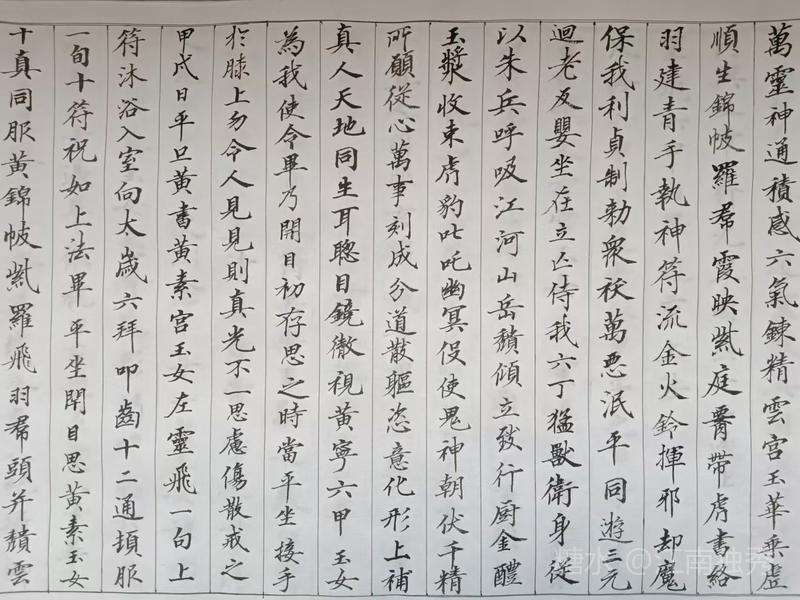 萬靈神通積感六氣鍊精雲宮玉華乗虛
順生錦帔羅帬霞映紫庭腎帶虎書絡
羽建青手執神符流金火鈴揮邪却魔
保我利貞制勅衆祅萬惡泯平同遊三元
迴老反嬰坐在立亡侍我六丁猛獸衛身従
以朱兵呼吸江河山岳頽傾立致行厨金醴
玉漿收束虎豹叱吒幽冥役使鬼神朝伏千精
所願従心萬事刻成分道散軀恣意化形上補
真人天地同生耳聰目鏡徹視黄寧六甲玉女
為我使令畢乃開目初存思之時當平坐接手
於膝上勿令人見見則真光不一思慮傷散戒之
甲戌日平旦黄書黄素宮玉女左靈飛一旬上
符沐浴入室向太歲六拜叩齒十二通頓服
一旬十符祝如上法畢平坐閇目思黄素玉女
十真同服黄錦帔紫羅飛羽帬頭并頽雲